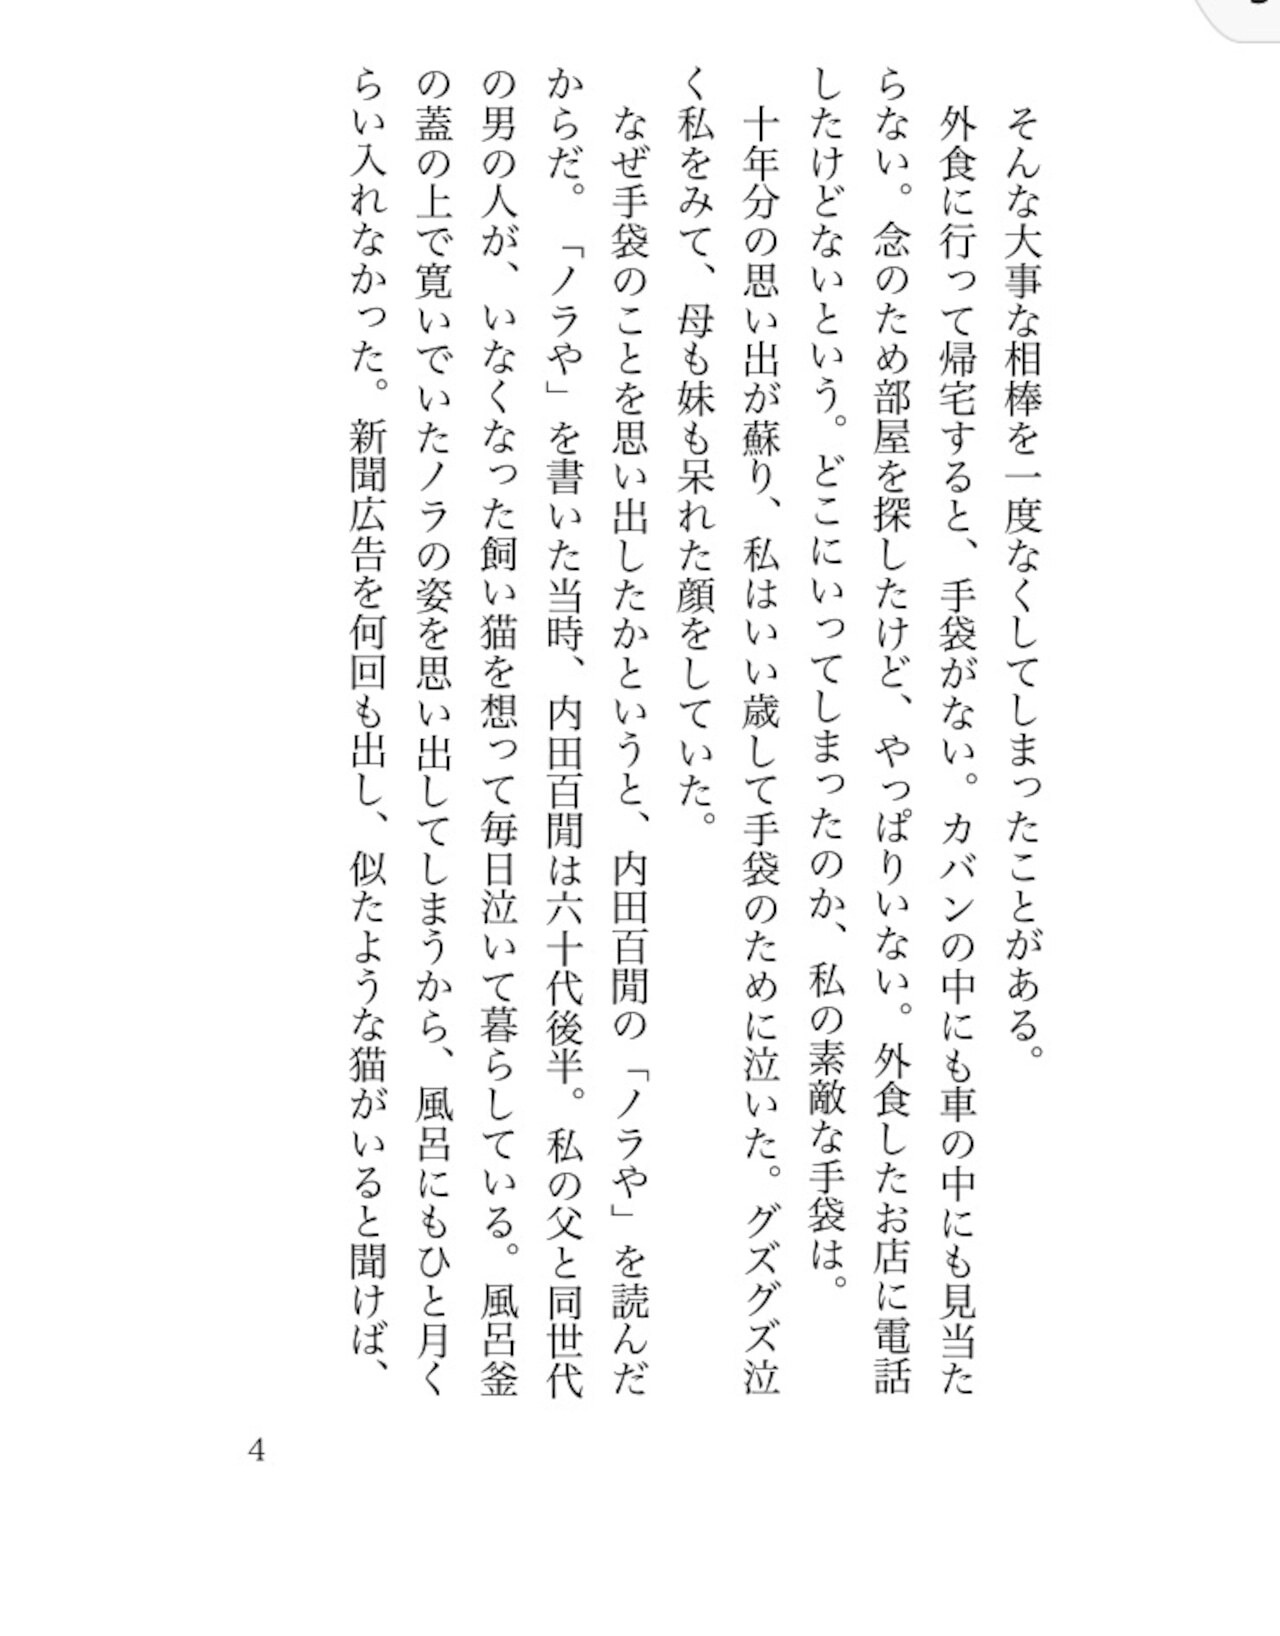 そんな大事な相棒を一度なくしてしまったことがある。
　外食に行って帰宅すると、手袋がない。カバンの中にも車の中にも見当た
らない。念のため部屋を探したけど、やっぱりいない。外食したお店に電話
したけどないという。どこにいってしまったのか、私の素敵な手袋は。
　十年分の思い出が蘇り、私はいい歳して手袋のために泣いた。グズグズ泣
く私をみて、母も妹も呆れた顔をしていた。
　なぜ手袋のことを思い出したかというと、内田百閒の「ノラや」を読んだ
からだ。「ノラや」を書いた当時、内田百閒は六十代後半。私の父と同世代
の男の人が、いなくなった飼い猫を想って毎日泣いて暮らしている。風呂釜
の蓋の上で寛いでいたノラの姿を思い出してしまうから、風呂にもひと月く
らい入れなかった。新聞広告を何回も出し、似たような猫がいると聞けば、
4